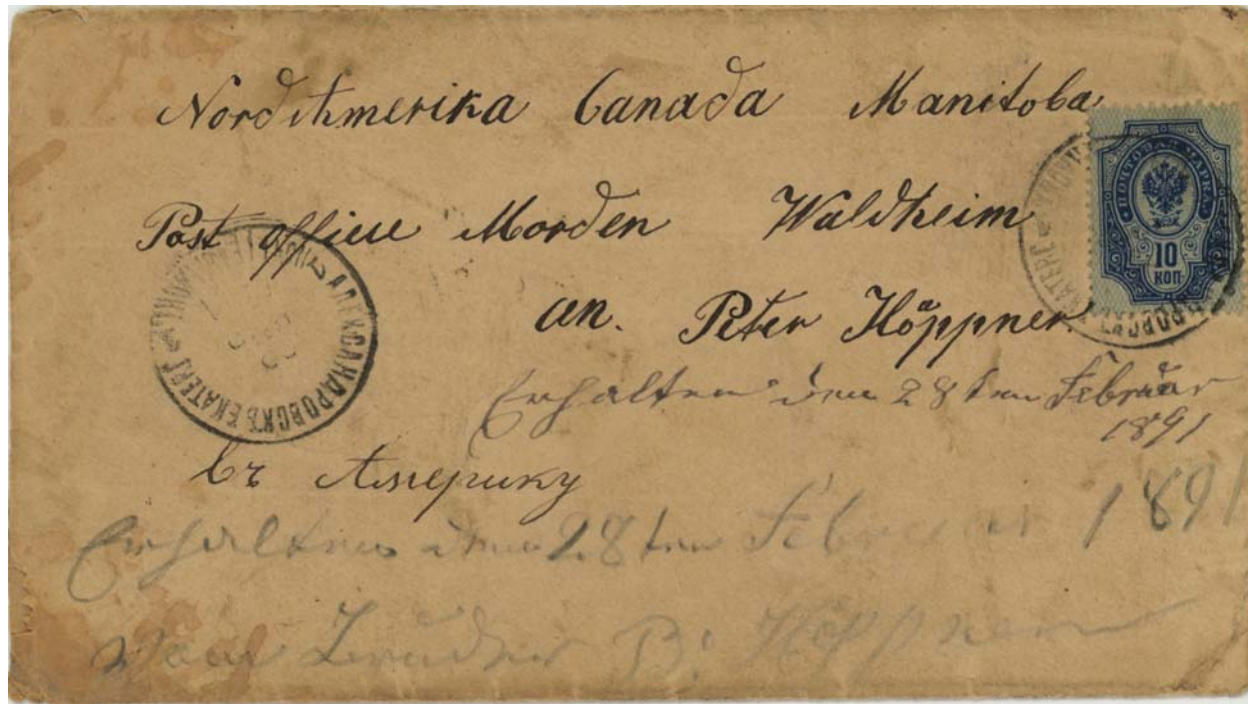 Nord Amerika Canada Manitoba
Post officee Morden Waldheim
an. Peter Höppner
Erhalten den 28ten Februar
1891
въ Америку
Erhalten den 28ten Februar 1891
Vom Bruder B. Höppner
ПОЧТОВАЯ МАРКА
10
КОП
АЛЕКСАНДРОВСКЪ ЕКАТЕР.